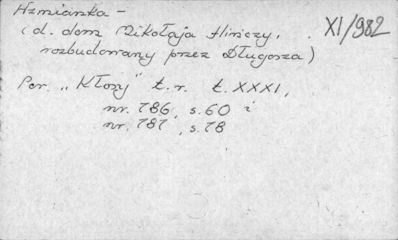 Wzmianka –
(d. dom Mikołaja Hińczy, XI/982
rozbudowany przez Długosza)
Por. „Kłosy” t. r. t. XXXI,
nr. 786, s. 60 i
nr. 787, s. 78